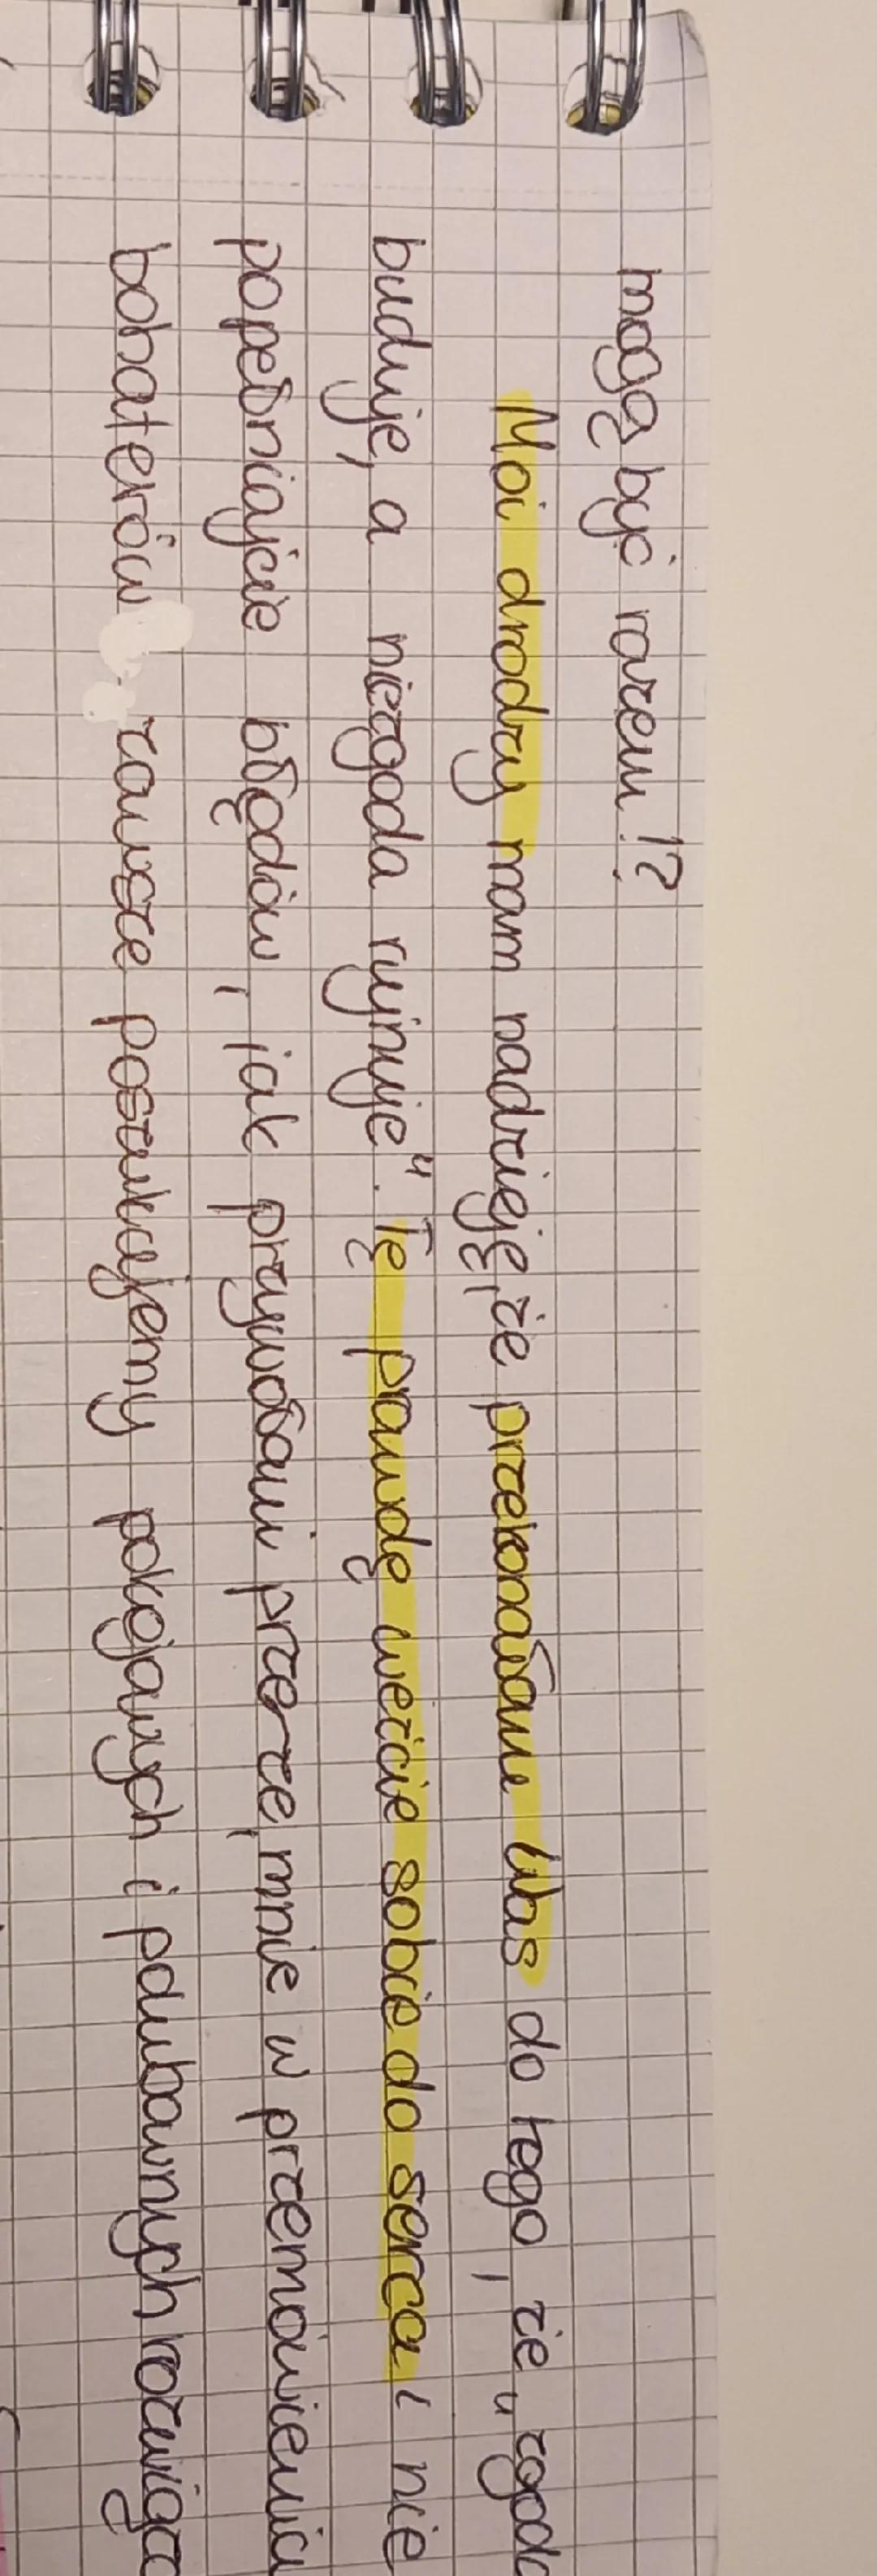 mogą być razem!?
Moi drodzy mam nadzieję, że przekonałam Was do tego, że „zgoda
buduje, a niezgoda rujnuje". Tę prawdę weźcie sobie do serca i nie
popełniajcie błędów, jak przywołani przeze, mnie w przemówieniu
bohaterów zawsze poszukajemy pokojowych i polubownych rozwiąza